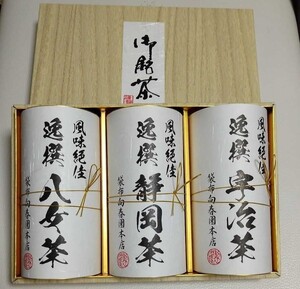 御銘茶
風味絶佳
逸撰
宇治茶
袋布向春園本店
風味絶佳
逸撰
静岡茶
袋布向春園本店
風味絶佳
逸撰
八女茶
袋布向春園本店